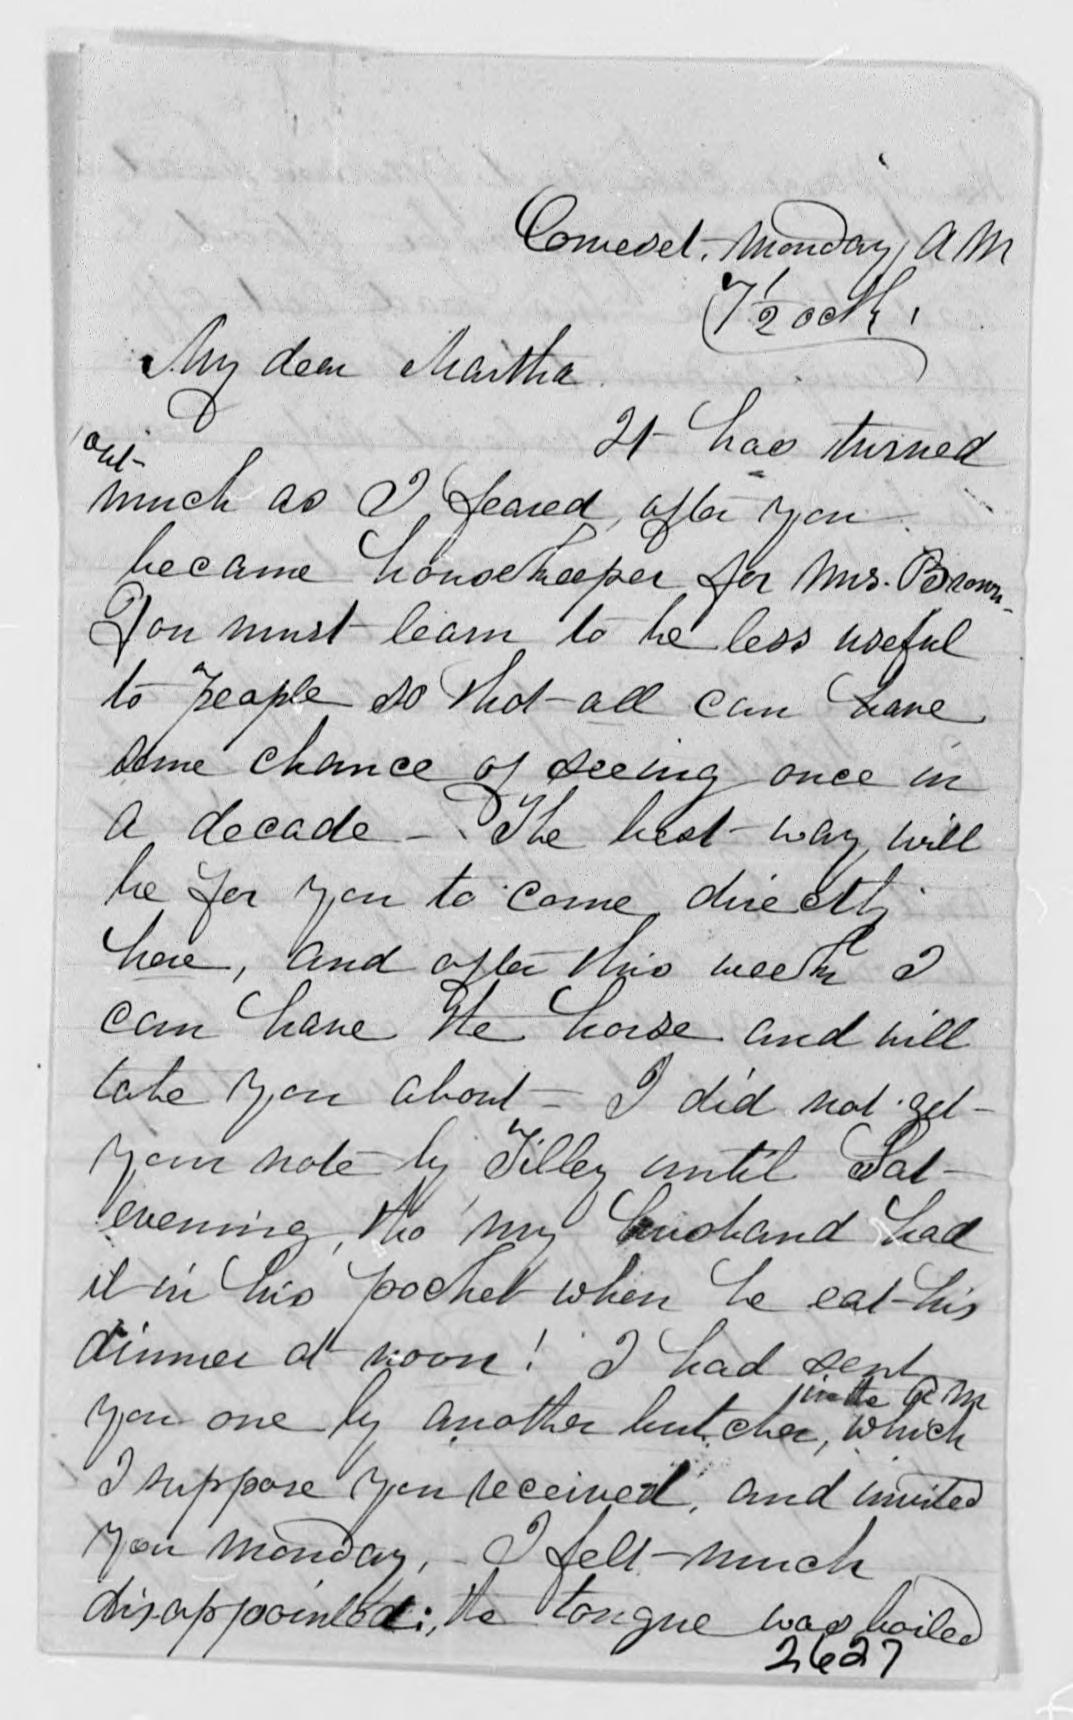 Comeset. Monday A M
7 1/2 ock.
My dear Martha.
It has turned
out
much as I feared, after you
became housekeeper for Mrs. Brown.
You must learn to be less useful
to people so that all can have
some chance of seeing once in
a decade - The best way will
be for you to come directly
here, and after this week I
can have the horse and will
take you about - I did not get
your note by Tilley until Sat-
evening, tho' my husband had
it in his pocket when he eat his
dinner at noon! I had sent
in the A M
you one by another butcher, which
I suppose you received, and invited
you Monday, - I felt much
disappointed; the tongue was boiled
2627